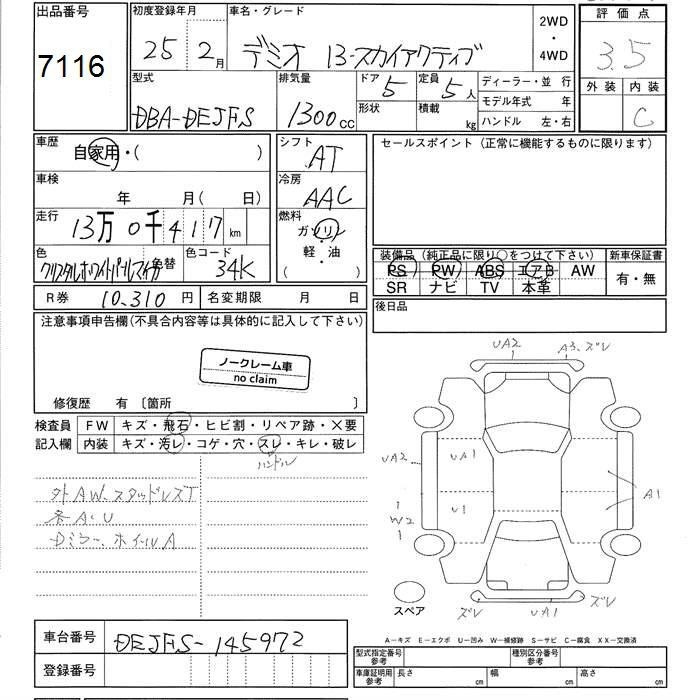 出品番号
7116
初度登録年月
25 2月
車名・グレード
デミオ 13-スカイアクティブ
2WD
・
4WD
評価点
3.5
外装 内装
C
型式
DBA-DEJFS
排気量
1300cc
ドア 5
形状
定員 5人
積載 kg
ディーラー・並 行
モデル年式 年
ハンドル 左・右
車歴
自家用・( )
車検
年 月( 日)
走行
13万0千417km
色
クリスタルホワイトパールマイカ
色替
色コード
34K
シフト
AT
冷房
AAC
燃料
ガソリン
・
軽・油
( )
セールスポイント(正常に機能するものに限ります)
装備品(純正品に限り○をつけて下さい)
PS PW ABS エアB AW
SR ナビ TV 本革
新車保証書
有・無
R券 10,310円
名変期限 月 日
後日品
注意事項申告欄(不具合内容等は具体的に記入して下さい)
ノークレーム車
no claim
修復歴 有 〔箇所 〕
検査員
記入欄
FW キズ・飛石・ヒビ割・リペア跡・X要
内装 キズ・汚レ・コゲ・穴・スレ・キレ・破レ
ハンドル
外AW、スタッドレスT
各A・U
Dミラー、ホイルA
UA2
A3、ズレ
UA2
UA1
U1
W2
A1
ズレ
UA1
ズレ
スペア
A−キズ E−エクボ U−凹み W−補修跡 S−サビ C−腐食 XX−交換済
車台番号
DEJFS-145972
登録番号
型式指定番号
参考
種別区分番号
参考
車庫証明用
参考
長さ cm
幅 cm
高さ cm